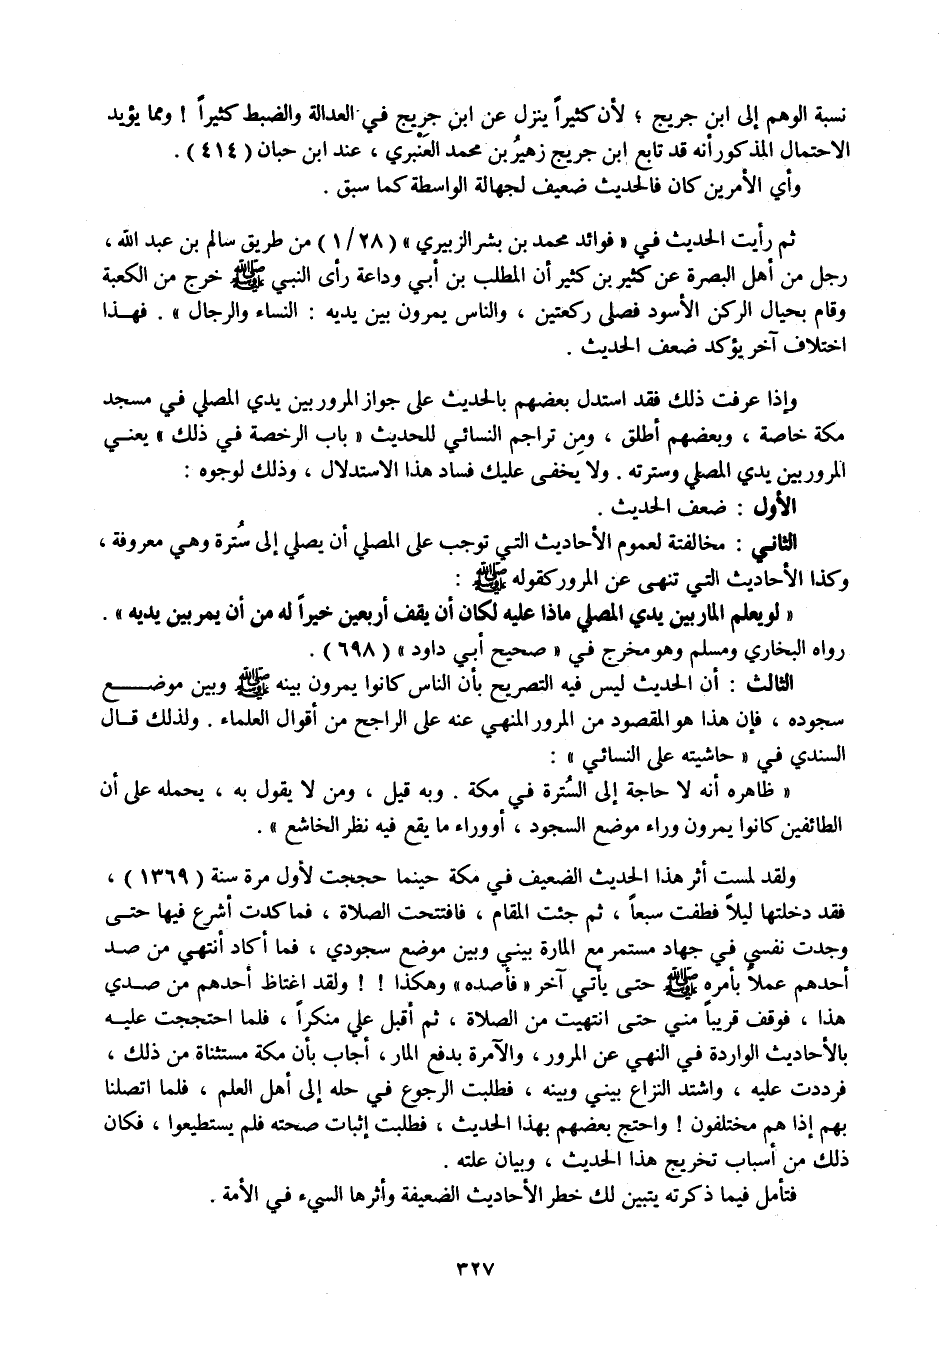 نسبة الوهم إلى ابن جريج ؛ لأن كثيراً ينزل عن ابن جريج في العدالة والضبط كثيراً ! ومما يؤيد
الاحتمال المذكور أنه قد تابع ابن جريج زهيرُ بن محمد العَنْبري ، عند ابن حبان ( ٤١٤ ) .
وأي الأمرين كان فالحديث ضعيف لجهالة الواسطة كما سبق .
ثم رأيت الحديث في « فوائد محمد بن بشر الزبيري » ( ٢٨ / ١ ) من طريق سالم بن عبد الله ،
رجل من أهل البصرة عن كثير بن كثير أن المطلب بن أبي وداعة رأى النبي ﷺ خرج من الكعبة
وقام بحيال الركن الأسود فصلى ركعتين ، والناس يمرون بين يديه : النساء والرجال » . فهـذا
اختلاف آخر يؤكد ضعف الحديث .
وإذا عرفت ذلك فقد استدل بعضهم بالحديث على جواز المرور بين يدي المصلي في مسجد
مكة خاصة ، وبعضهم أطلق ، ومِن تراجم النسائي للحديث « باب الرخصة في ذلك » يعني
المرور بين يدي المصلي وسترته . ولا يخفى عليك فساد هذا الاستدلال ، وذلك لوجوه :
الأول : ضعف الحديث .
الثاني : مخالفتة لعموم الأحاديث التي توجب على المصلي أن يصلي إلى سُترة وهي معروفة ،
وكذا الأحاديث التي تنهى عن المرور كقوله ﷺ :
« لو يعلم المار بين يدي المصلي ماذا عليه لكان أن يقف أربعين خيراً له من أن يمر بين يديه » .
رواه البخاري ومسلم وهو مخرج في « صحيح أبي داود » ( ٦٩٨ ) .
الثالث : أن الحديث ليس فيه التصريح بأن الناس كانوا يمرون بينه ﷺ وبين موضـــع
سجوده ، فإن هذا هو المقصود من المرور المنهي عنه على الراجح من أقوال العلماء . ولذلك قـال
السندي في « حاشيته على النسائي » :
« ظاهره أنه لا حاجة إلى السُترة في مكة . وبه قيل ، ومن لا يقول به ، يحمله على أن
الطائفين كانوا يمرون وراء موضع السجود ، أو وراء ما يقع فيه نظر الخاشع » .
ولقد لمست أثر هذا الحديث الضعيف في مكة حينما حججت لأول مرة سنة ( ١٣٦٩ ) ،
فقد دخلتها ليلاً فطفت سبعاً ، ثم جئت المقام ، فافتتحت الصلاة ، فما كدت أشرع فيها حتى
وجدت نفسي في جهاد مستمر مع المارة بيني وبين موضع سجودي ، فما أكاد أنتهي من صد
أحدهم عملاً بأمره ﷺ حتى يأتي آخر « فأصده » وهكذا ! ! ولقد اغتاظ أحدهم من صـدي
هذا ، فوقف قريباً مني حتى انتهيت من الصلاة ، ثم أقبل علي منكراً ، فلما احتججت عليـه
بالأحاديث الواردة في النهي عن المرور ، والآمرة بدفع المار ، أجاب بأن مكة مستثناة من ذلك ،
فرددت عليه ، واشتد النزاع بيني وبينه ، فطلبت الرجوع في حله إلى أهل العلم ، فلما اتصلنا
بهم إذا هم مختلفون ! واحتج بعضهم بهذا الحديث ، فطلبت إثبات صحته فلم يستطيعوا ، فكان
ذلك من أسباب تخريج هذا الحديث ، وبيان علته .
فتأمل فيما ذكرته يتبين لك خطر الأحاديث الضعيفة وأثرها السيء في الأمة .
٣٢٧